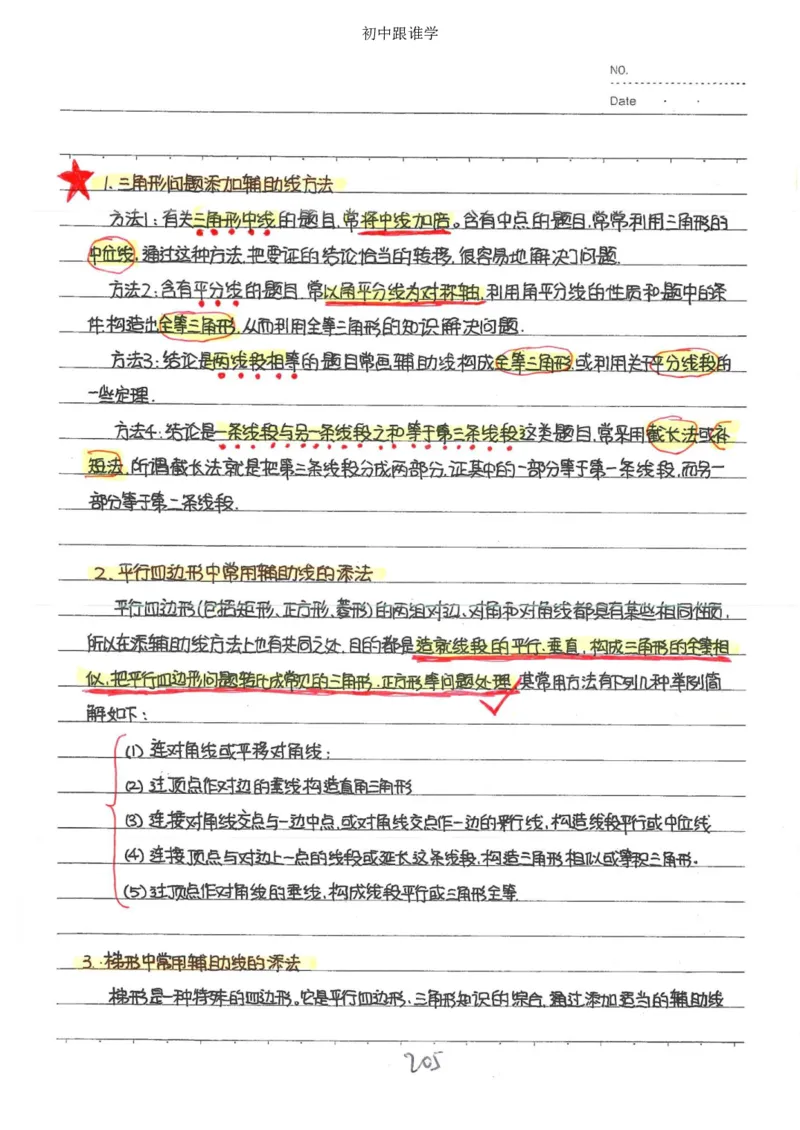 初中跟谁学
NO.
Date · ·
1.三角形问题添加辅助线方法
方法1:有关三角形中线的题目,常将中线加倍。含有中点的题目,常常利用三角形的
中位线,通过这种方法,把要证的结论恰当的转移,很容易地解决了问题.
方法2:含有平分线的题目,常以角平分线为对称轴,利用角平分线的性质和题中的条
件,构造出全等三角形,从而利用全等三角形的知识解决问题.
方法3:结论是两线段相等的题目常画辅助线构成全等三角形,或利用关于平分线段的
一些定理.
方法4:结论是一条线段与另一条线段之和等于第三条线段这类题目,常采用截长法或补
短法,所谓截长法就是把第三条线段分成两部分,证其中的一部分等于第一条线段,而另一
部分等于第二条线段.
2.平行四边形中常用辅助线的添法
平行四边形(包括矩形、正方形、菱形)的两组对边、对角和对角线都具有某些相同性质,
所以在添辅助线方法上也有共同之处,目的都是造就线段的平行、垂直,构成三角形的全等相
似,把平行四边形问题转化成常见的三角形、正方形等问题处理,其常用方法有下列几种,举例简
解如下:
(1)连对角线或平移对角线;
(2)过顶点作对边的垂线构造直角三角形
(3)连接对角线交点与一边中点,或对角线交点作一边的平行线,构造线段平行或中位线
(4)连接顶点与对边上一点的线段或延长这条线段,构造三角形相似或等积三角形.
(5)过顶点作对角线的垂线,构成线段平行或三角形全等.
3.梯形中常用辅助线的添法
梯形是一种特殊的四边形。它是平行四边形、三角形知识的综合,通过添加适当的辅助线
205